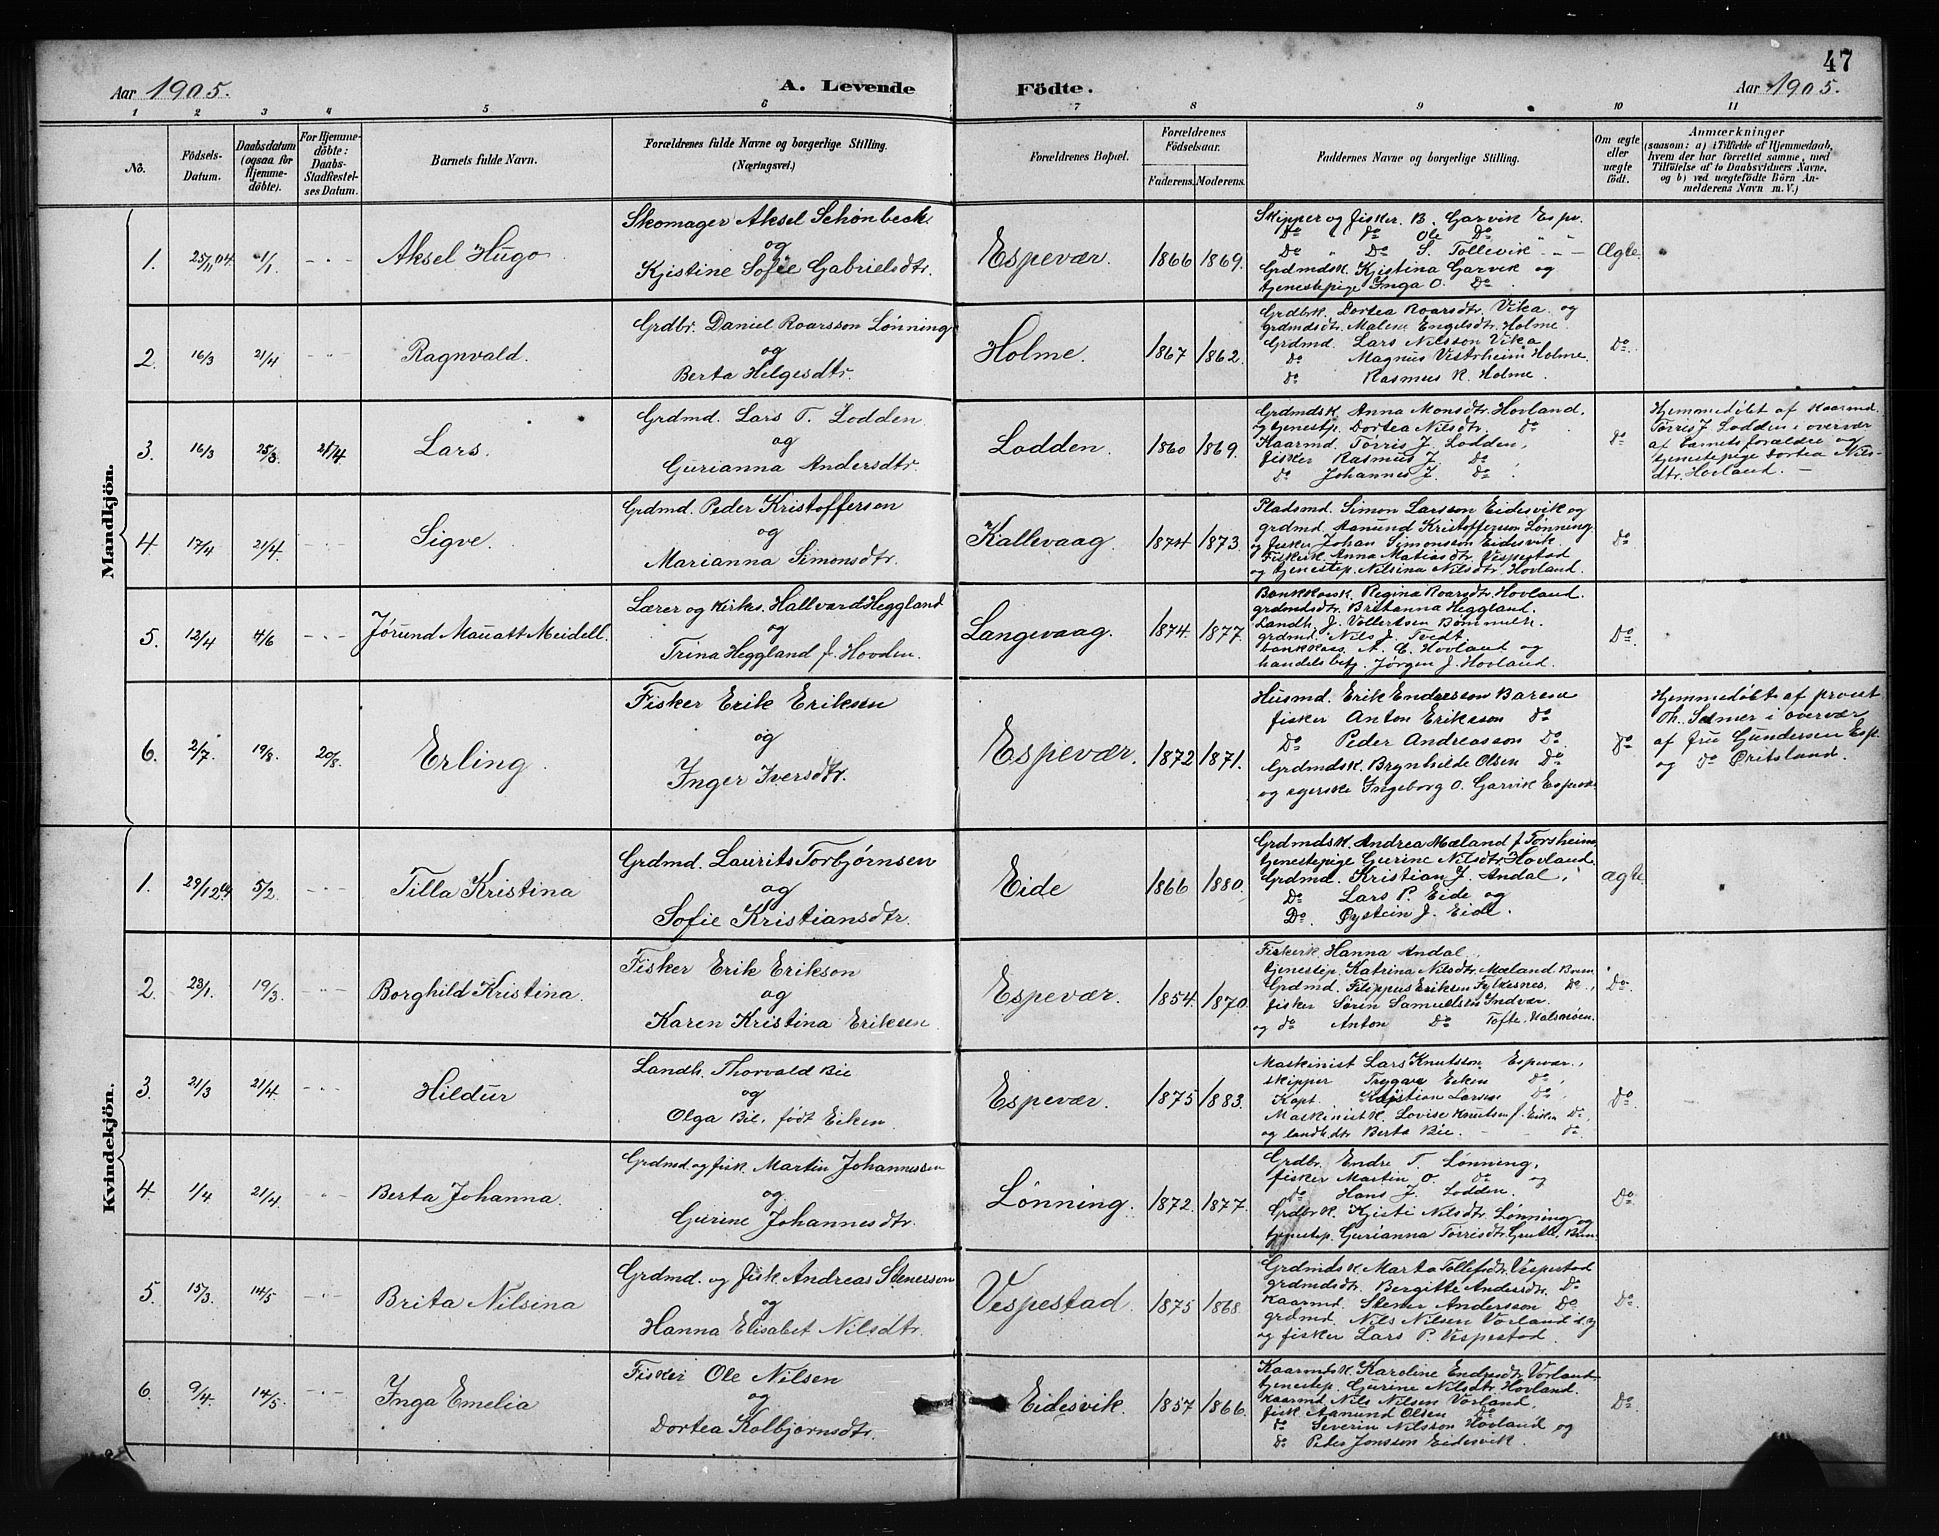 47
Aar 1905. A. Levende Födte. Aar 1905.
1 2 3 4 5 6 7 8 9 10 11
No.
Födsels-
Datum.
Daabsdatum
(ogsaa for
Hjemme-
döbte).
For Hjemme-
döbte:
Daabs-
Stadfæstel-
ses Datum.
Barnets fulde Navn.
Forældrenes fulde Navne og borgerlige Stilling.
(Næringsvei.)
Forældrenes Bopæl.
Forældrenes
Födselsaar.
Faderens. Moderens.
Faddernes Navne og borgerlige Stilling.
Om ægte
eller
uægte
födt.
Anmærkninger
(saasom: a) i Tilfælde af Hjemmedaab,
hvem der har forrettet samme, med
Tilföielse af to Daabsvidners Navne,
og b) ved uægtefödte Börn An-
melderens Navn m. V.)
Mandkjön.
1. 25/11 04. 1/1 - " - Aksel Hugo
Skomager Aksel Schønbeck
og
Kjistine Sofie Gabrielsdtr.
Espevær. 1866 1869.
Skipper og fisker B. Garvik Espv.
Do " Do Ole Do
Do " Do S. Tollevik " -
Grdmdsk. Kjistina Garvik og
tjenestepige Inga O. Do .
Ægte.
2. 16/3 21/4 - " - Ragnvald.
Grdbr. Daniel Roarsson Lønning
og
Berta Helgesdtr.
Holme. 1867 1862.
Grdbrk. Dortea Roarsdtr. Vika og
grdmdsdtr. Malene Engelsdtr. Holme
Grdmd. Lars Nilsson Vika
do Magnus Vestrheim Holme
do Rasmus K. Holme.
Do
3. 16/3 25/3 21/4 Lars.
Grdmd. Lars T. Lodden
og
Gurianna Andersdtr.
Lodden. 1860 1869.
Grdmdsk. Anna Monsdtr. Hovland,
og tjenestp. Dortea Nilsdtr. Do
Kaarmd. Tørris J. Lodden,
fisker Rasmus J. Do
Do Johannes J. Do
Do
Hjemmedøbt af Kaarmd.
Tørris J. Lodden i overvær
af barnets forældre og
tjenestepige Dortea Nils-
dtr. Hovland. -
4. 17/4 21/4 - " - Sigve.
Grdmd. Peder Kristofferson
og
Marianna Simonsdtr.
Kallevaag. 1874 1873.
Pladsmd. Simon Larsson Eidesvik og
grdmd. Aanund Kristofferson Lønning
og fisker Johan Simonsson Eidesvik.
Fiskerk. Anna Matiasdtr. Vespestad
og tjenestep. Nilsina Nilsdtr. Hovland.
Do
5. 12/4 4/6 - " - Jørund Mauatt Meidell.
Lærer og Kirkes. Hallvard Heggland
og
Trina Heggland f. Hovden.
Langevaag. 1874. 1877.
Bankkask. Regina Roarsdtr. Hovland.
grdmdsdtr. Britanna Heggland.
Landh. J. Vollertsen Bømmelh.
grdmd. Nils J. Tvedt.
bankkass. A. C. Hovland og
handelsbetj. Jørgen J. Hovland.
Do
6. 2/7 19/8. 20/8 Erling.
Fisker Erik Eriksen
og
Inger Iversdtr.
Espevær. 1872 1871.
Husmd. Erik Endresson Barane
fisker Anton Eriksson Do
Do Peder Andreasson Do
Grdmdsk. Brynhilde Olsen Do
og Ingeborg O. Garvik Espevær
Do
Hjemmedøbt af provst
Th. Selmer i overvær
af fru Gundersen Esp.
og Do Øritsland.
Kvindekjön.
1. 29/12 04 5/2 - " - Tilla Kristina
Grdmd. Laurits Torbjørnsen
og
Sofie Kristiansdtr.
Eide 1866 1880.
Grdmdsk. Andrea Mæland f. Forsheim
tjenestepige Gurine Nilsdtr. Hovland.
Grdmd. Kristian J. Andal,
Do Lars P. Eide og
Do. Øystein J. Eide.
ægte.
2. 23/1. 19/3 - " - Borghild Kristina.
Fisker Erik Erikson
og
Karen Kristina Eriksen.
Espevær. 1854. 1870.
Fiskerk Hanna Andal,
tjenestep. Katrina Nilsdtr. Mæland Brem.
Grdmd. Filippus Eriksen Fylkesnes, Do ,
fisker Søren Samuelsen Indvær.
og do Anton Do Tofte. Kalsnøen.
Do
3. 21/3 21/4 - " - Hildur
Landh. Thorvald Bie
og
Olga Bie, født Eiken.
Espevær. 1875 1883.
Maskinist Lars Knutsson Espevær,
skipper Trygve Eeken Do,
Kapt. Kristian Larsen Do,
Maskinistk. Lovise Knutsen f. Eiken Do,
og landh.dtr. Berta Bie. - - Do
Do
4. 1/4 21/4 - " - Berta Johanna.
Grdmd. og fisk. Martin Johannessen
og
Gurine Johannesdtr.
Lønning. 1872. 1877.
Grdbr. Endre T. Lønning,
fisker Martin O. Do og
Do Hans J. Lodden.
Grdbrk. Kjisti Nilsdtr. Lønning og
tjenestep. Gurianna Tørrisdtr. Grutle, Bøm.
Do
5. 15/3. 14/5 - " - Brita Nilsina
Grdmd. og fisk Andreas Stenersson
og
Hanna Elisabet Nilsdtr.
Vespestad. 1875 1868.
Grdmdsk Marta Tollefsdtr. Vespestad
grdmdsdtr. Bergitte Andersdtr. Do
Kaarmd. Stener Andersson Do
grdmd. Nils Nilsen Vorland
og fisker Lars P. Vespestad.
Do
6. 9/4. 14/5 - " - Inga Emelia
Fisker Ole Nilsen
og
Dortea Kolbjørnsdtr.
Eidesvik 1857 1866.
Kaarmdsk. Karoline Endresdtr Vorland
tjenestep. Gurine Nilsdtr. Hovland.
Kaarmd Nils Nilsen Vorland,
fisk. Aamund Olsen Do
Do Severin Nilsson Hovland og
Do Peder Jonsson Eidesvik.
Do